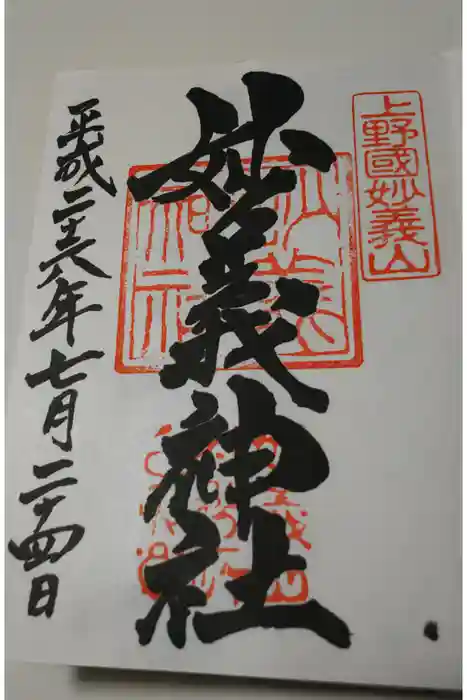 上野國妙義山
妙義神社
平成二十六年七月二十四日